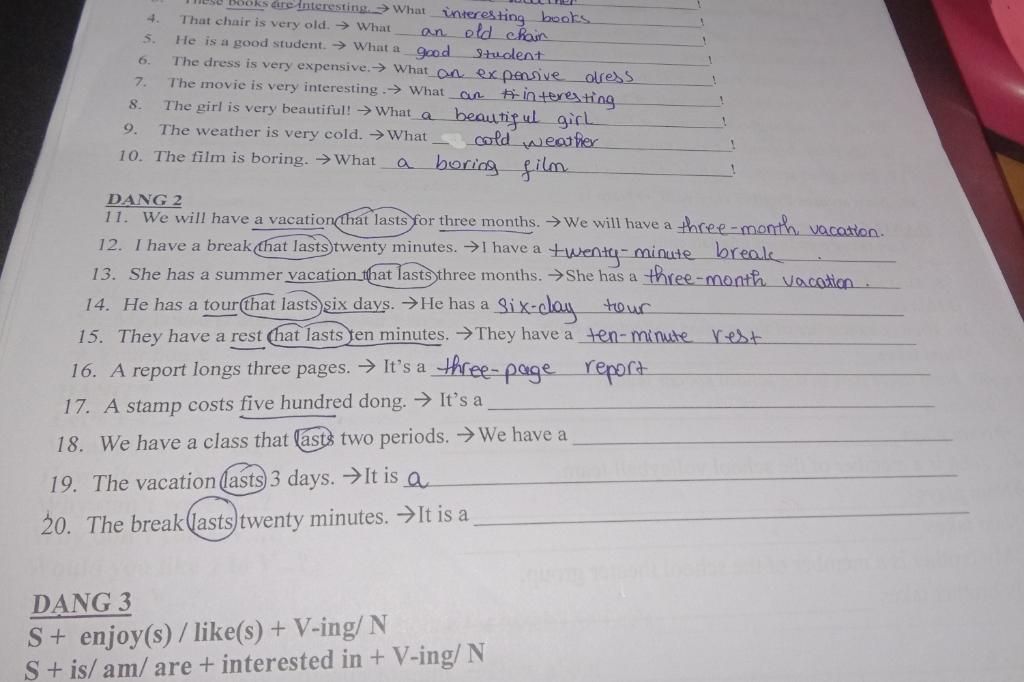 These books are interesting. → What interesting books !
4. That chair is very old. → What an old chair !
5. He is a good student. → What a good student !
6. The dress is very expensive. → What an expensive dress !
7. The movie is very interesting .→ What an interesting !
8. The girl is very beautiful! → What a beautiful girl !
9. The weather is very cold. → What cold weather !
10. The film is boring. → What a boring film !
DANG 2
11. We will have a vacation that lasts for three months. → We will have a three-month vacation.
12. I have a break that lasts twenty minutes. → I have a twenty-minute break .
13. She has a summer vacation that lasts three months. → She has a three-month vacation .
14. He has a tour that lasts six days. → He has a six-day tour
15. They have a rest that lasts ten minutes. → They have a ten-minute rest
16. A report longs three pages. → It's a three-page report
17. A stamp costs five hundred dong. → It's a
18. We have a class that lasts two periods. → We have a
19. The vacation lasts 3 days. → It is a
20. The break lasts twenty minutes. → It is a
DANG 3
S + enjoy(s) / like(s) + V-ing/ N
S + is/ am/ are + interested in + V-ing/ N